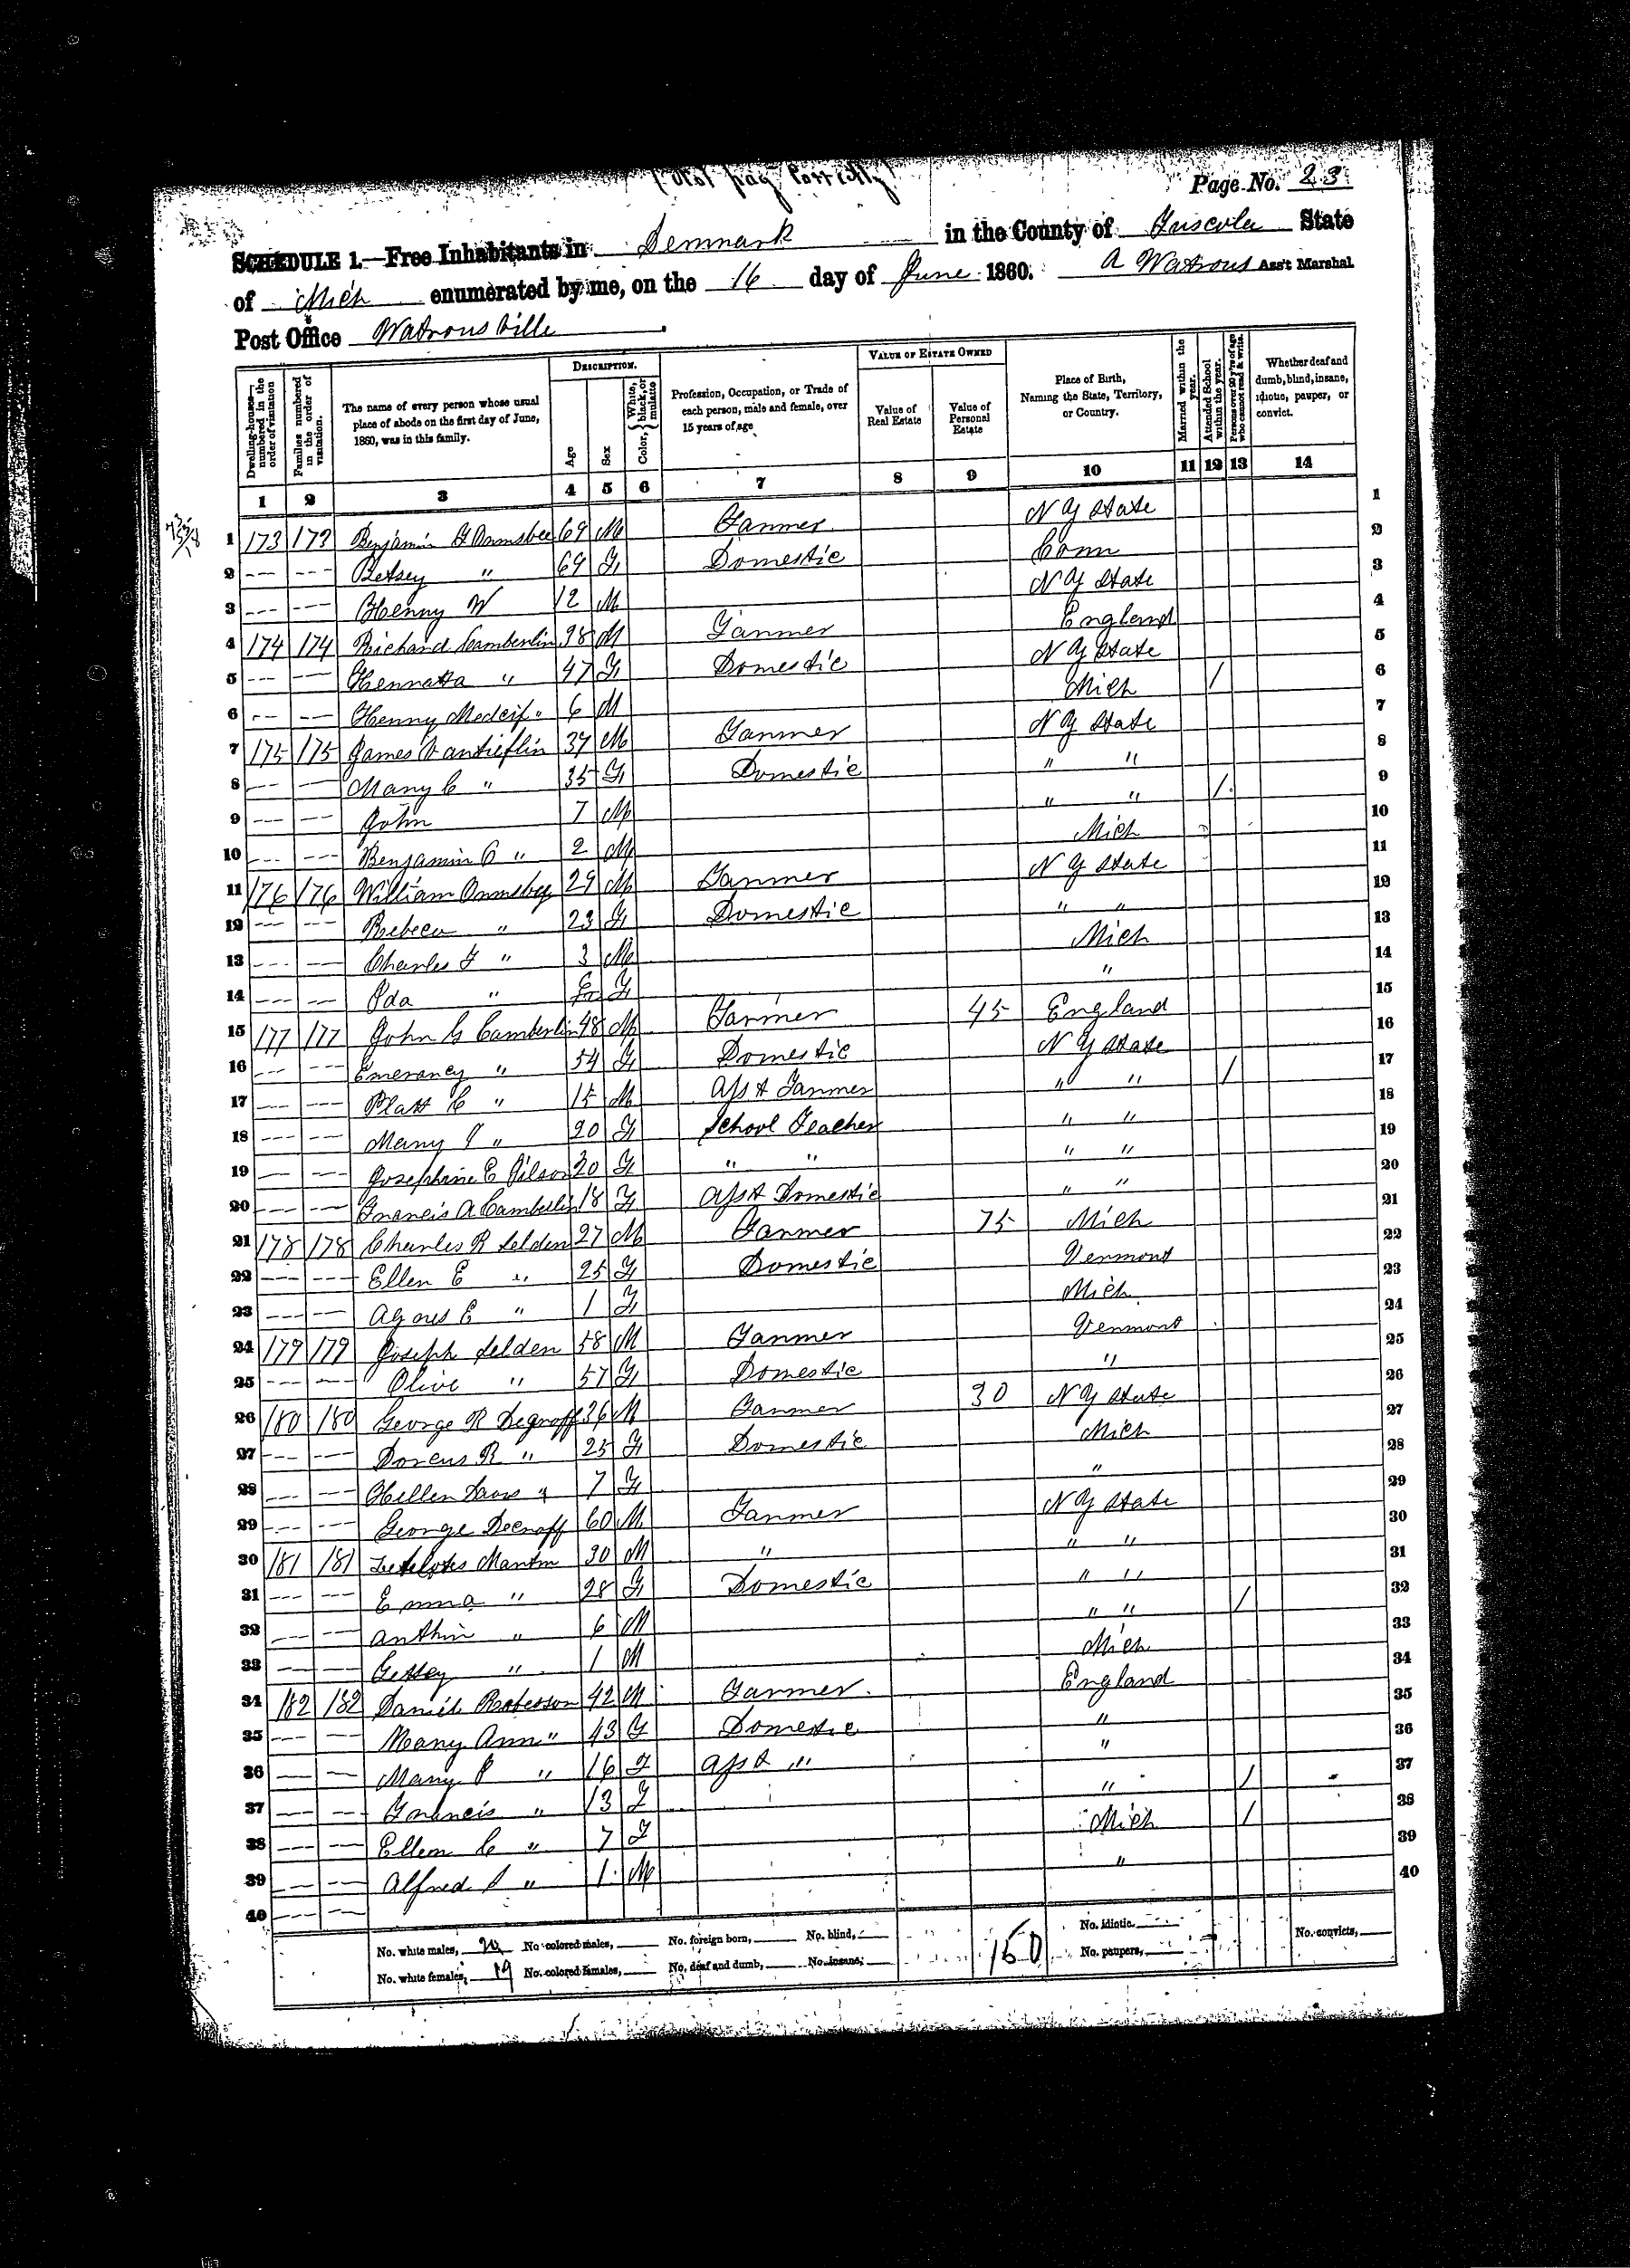 Page No. 23
SCHEDULE 1.—Free Inhabitants in Denmark in the County of Tuscola State
of Mich enumerated by me, on the 16 day of June 1860. A Watrous Ass't Marshal
Post Office Watrousville
Dwelling-houses—numbered in the order of visitation
Families numbered in the order of visitation.
The name of every person whose usual place of abode on the first day of June, 1860, was in this family.
DESCRIPTION.
Age
Sex
Color, {White, black, or mulatto
Profession, Occupation, or Trade of each person, male and female, over 15 years of age
VALUE OF ESTATE OWNED
Value of Real Estate
Value of Personal Estate
Place of Birth, Naming the State, Territory, or Country.
Married within the year.
Attended School within the year.
Persons over 20 y'rs of age who cannot read & write.
Whether deaf and dumb, blind, insane, idiotic, pauper, or convict.
1 2 3 4 5 6 7 8 9 10 11 12 13 14
1 173 173 Benjamin Ormsbee 69 M Farmer N Y State 1
2 Betsey " 69 F Domestic Conn 2
3 Henry W 12 M N Y State 3
4 174 174 Richard Camberlin 38 M Farmer England 4
5 Hennatta " 47 F Domestic N Y State 5
6 Henry " 6 M Mich / 6
7 175 175 James 37 M Farmer N Y State 7
8 Mary C " 35 F Domestic " " 8
9 John 7 M " " / 9
10 Benjamin C " 2 M Mich 10
11 176 176 William Ormsbey 29 M Farmer N Y State 11
12 Rebeca " 23 F Domestic " " 12
13 Charles F " 3 M Mich 13
14 Ida " F " 14
15 177 177 John G Camberlin 48 M Farmer 45 England 15
16 Emerancy " 54 F Domestic N Y State 16
17 Platt C " 15 M Asst Farmer " " / 17
18 Mary J " 20 F School Teacher " " 18
19 Josephine E 20 F " " " " 19
20 Francis A Camberlin 18 F Asst Domestic " " 20
21 178 178 Charles R Selden 27 M Farmer 75 Mich 21
22 Ellen E " 25 F Domestic Vermont 22
23 Agnes E " 1 F Mich 23
24 179 179 Joseph Selden 58 M Farmer Vermont 24
25 Olive " 57 F Domestic " 25
26 180 180 George R Degraff 36 M Farmer 30 N Y State 26
27 Dorcus R " 25 F Domestic Mich 27
28 Hellen " 7 F " 28
29 George Degraff 60 M Farmer N Y State 29
30 181 181 Martin 30 M " " " 30
31 Emma " 28 F Domestic " " 31
32 Arthur " 6 M " " / 32
33 " 1 M Mich 33
34 182 182 Daniel Roberson 42 M Farmer England 34
35 Mary Ann " 43 F Domestic " 35
36 Mary " 16 F Asst " " 36
37 Francis " 13 F " / 37
38 Ellen C " 7 F Mich / 38
39 Alfred " 1 M " 39
40 40
No. white males, 20 No. colored males, No. foreign born, No. blind, 150 No. idiotic. No. convicts,
No. white females, 19 No. colored females, No. deaf and dumb, No. insane, No. paupers,